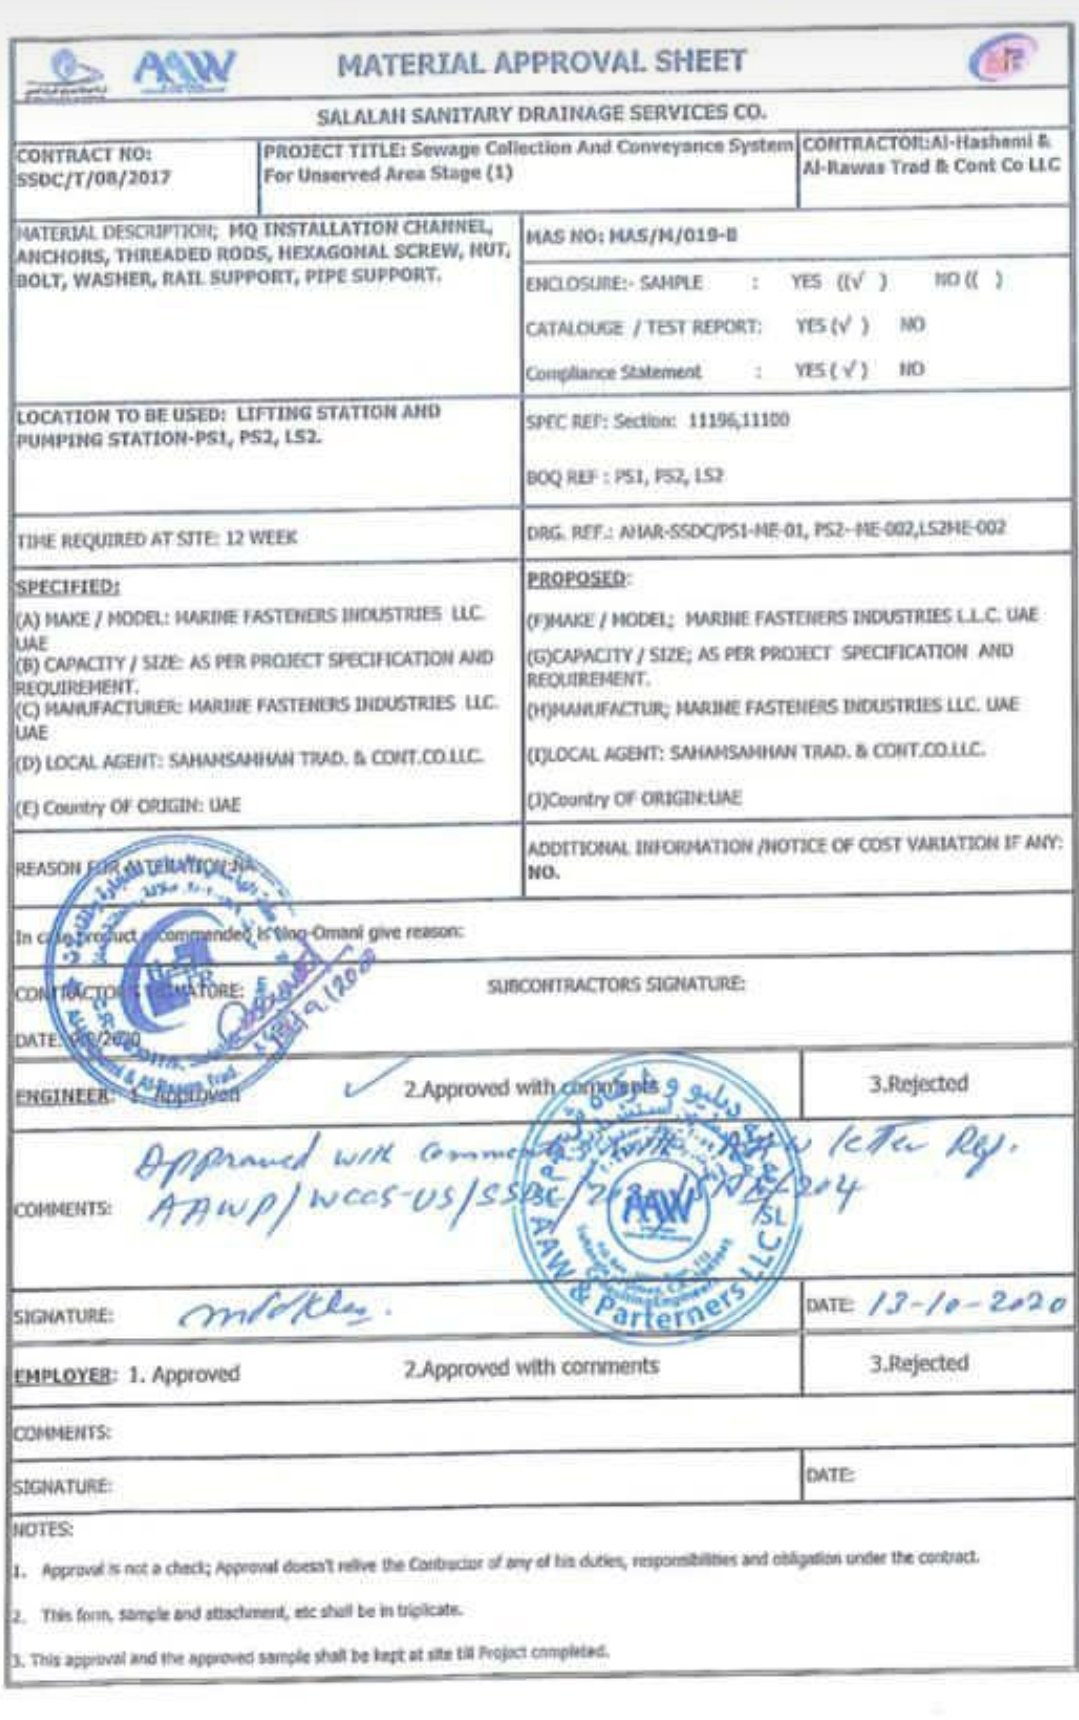 AAW
MATERIAL APPROVAL SHEET
SALALAH SANITARY DRAINAGE SERVICES CO.
CONTRACT NO:
SSDC/T/08/2017
PROJECT TITLE: Sewage Collection And Conveyance System
For Unserved Area Stage (1)
CONTRACTOR:Al-Hashemi &
Al-Rawas Trad & Cont Co LLC
MATERIAL DESCRIPTION; MQ INSTALLATION CHANNEL,
ANCHORS, THREADED RODS, HEXAGONAL SCREW, NUT,
BOLT, WASHER, RAIL SUPPORT, PIPE SUPPORT.
MAS NO: MAS/M/019-B
ENCLOSURE:- SAMPLE : YES ((√ ) NO (( )
CATALOUGE / TEST REPORT: YES (√ ) NO
Compliance Statement : YES ( √ ) NO
LOCATION TO BE USED: LIFTING STATION AND
PUMPING STATION-PS1, PS2, LS2.
SPEC REF: Section: 11196,11100
BOQ REF : PS1, PS2, LS2
TIME REQUIRED AT SITE: 12 WEEK
DRG. REF.: AHAR-SSDC/PS1-ME-01, PS2--ME-002,LS2ME-002
SPECIFIED:
(A) MAKE / MODEL: MARINE FASTENERS INDUSTRIES LLC.
UAE
(B) CAPACITY / SIZE: AS PER PROJECT SPECIFICATION AND
REQUIREMENT.
(C) MANUFACTURER: MARINE FASTENERS INDUSTRIES LLC.
UAE
(D) LOCAL AGENT: SAHAMSAMHAN TRAD. & CONT.CO.LLC.
(E) Country OF ORIGIN: UAE
PROPOSED:
(F)MAKE / MODEL; MARINE FASTENERS INDUSTRIES L.L.C. UAE
(G)CAPACITY / SIZE; AS PER PROJECT SPECIFICATION AND
REQUIREMENT.
(H)MANUFACTUR; MARINE FASTENERS INDUSTRIES LLC. UAE
(I)LOCAL AGENT: SAHAMSAMHAN TRAD. & CONT.CO.LLC.
(J)Country OF ORIGIN:UAE
REASON FOR ALTERATION:NA
ADDITIONAL INFORMATION /NOTICE OF COST VARIATION IF ANY:
NO.
In case product recommended is Non-Omani give reason:
CONTRACTORS SIGNATURE:
SUBCONTRACTORS SIGNATURE:
DATE:
ENGINEER: 1. Approved
2.Approved with comments
3.Rejected
COMMENTS:
Approved with comments AAW letter Ref.
AAWP/WCCS-US/SSDC/
AAW
AAW & Parterners LLC
SIGNATURE:
DATE: 13-10-2020
EMPLOYER: 1. Approved
2.Approved with comments
3.Rejected
COMMENTS:
SIGNATURE:
DATE:
NOTES:
1. Approval is not a check; Approval doesn't relive the Contractor of any of his duties, responsibilities and obligation under the contract.
2. This form, sample and attachment, etc shall be in triplicate.
3. This approval and the approved sample shall be kept at site till Project completed.